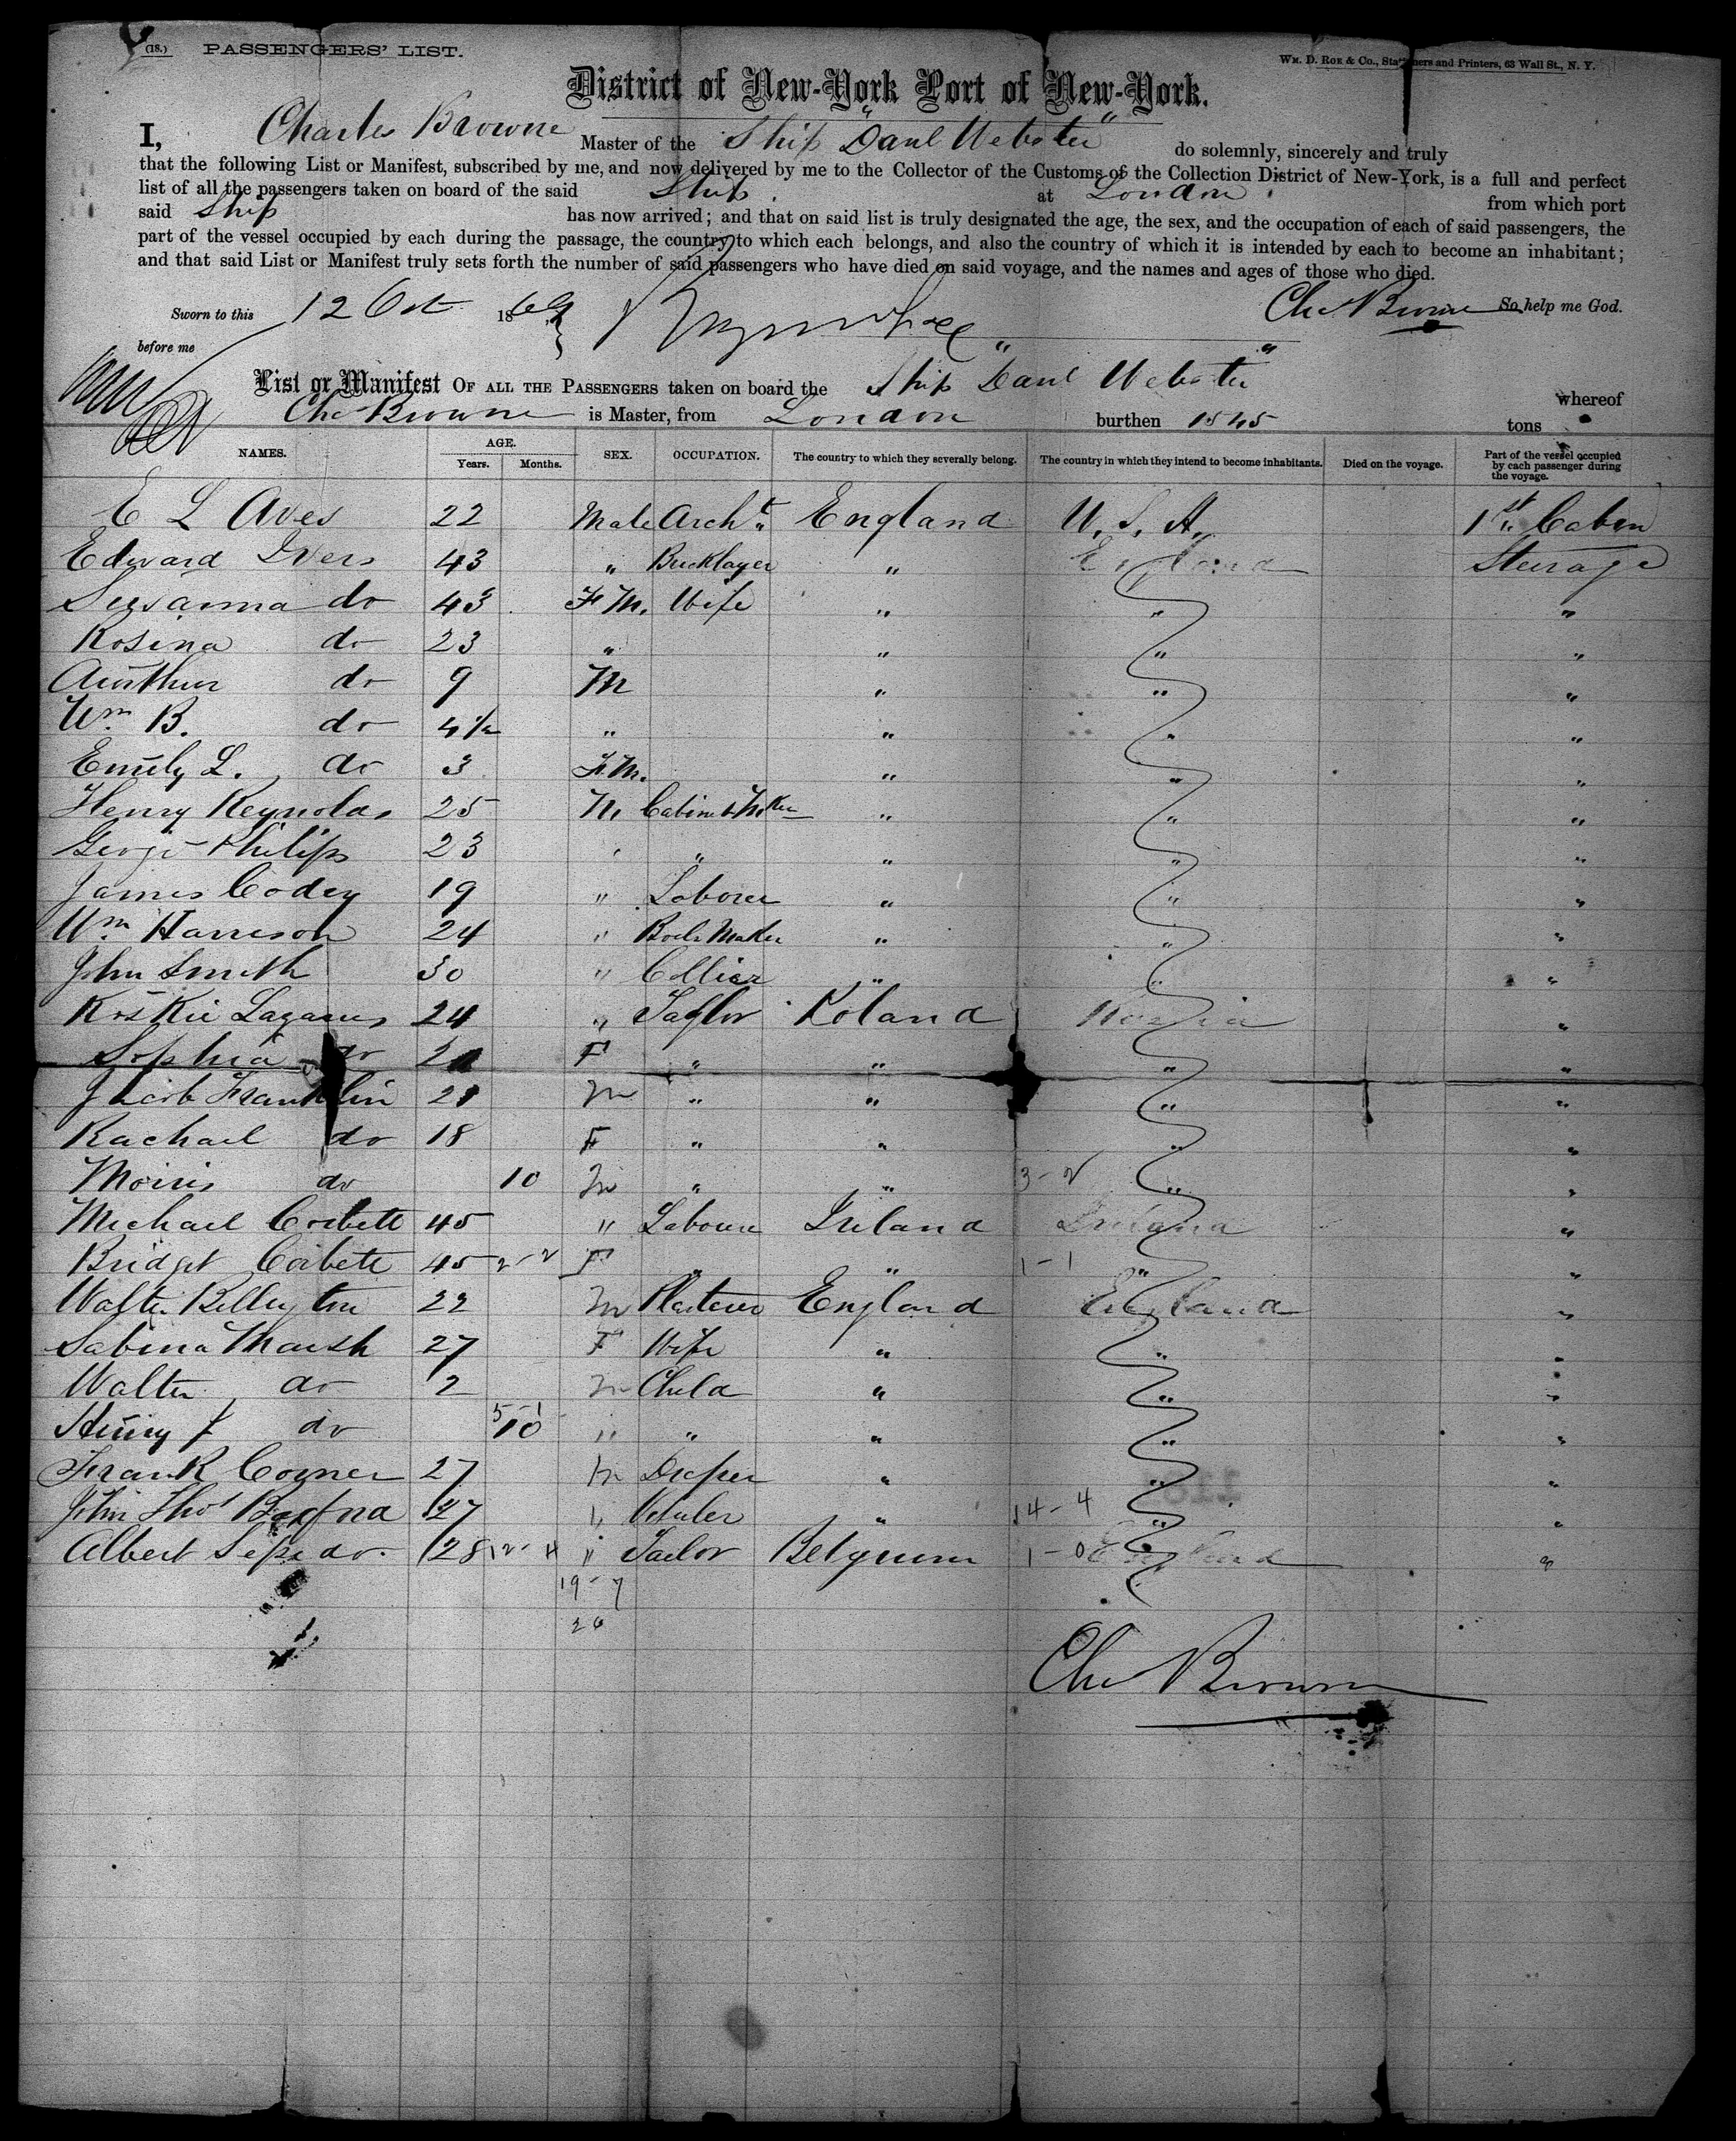 (18.) PASSENGERS' LIST.
WM. D. ROE & CO., Stationers and Printers, 63 Wall St., N. Y.
District of New-York Port of New-York.
I, Charles Browne Master of the Ship "Danl Webster" do solemnly, sincerely and truly
that the following List or Manifest, subscribed by me, and now delivered by me to the Collector of the Customs of the Collection District of New-York, is a full and perfect
list of all the passengers taken on board of the said Ship at London from which port
said Ship has now arrived; and that on said list is truly designated the age, the sex, and the occupation of each of said passengers, the
part of the vessel occupied by each during the passage, the country to which each belongs, and also the country of which it is intended by each to become an inhabitant;
and that said List or Manifest truly sets forth the number of said passengers who have died on said voyage, and the names and ages of those who died.
Sworn to this 12 Oct 1869 Chs Browne So help me God.
before me
List or Manifest OF ALL THE PASSENGERS taken on board the Ship "Danl Webster" whereof
Chs Browne is Master, from London burthen 1545 tons
NAMES. AGE. Years. Months. SEX. OCCUPATION. The country to which they severally belong. The country in which they intend to become inhabitants. Died on the voyage. Part of the vessel occupied by each passenger during the voyage.
E L Aves 22 Male Archt England U.S.A. 1st Cabin
Edward Ivers 43 " Bricklayer " England Steerage
Susanna do 43 F M. Wife " " "
Rosina do 23 " " " "
Aurthur do 9 M " " "
Wm B. do 4 1/2 " " " "
Emily L. do 3 F M. " " "
Henry Reynolds 25 M Cabinet Mker " " "
George Philips 23 " " " " "
James Codey 19 " Laborer " " "
Wm Harrison 24 " Boilr Maker " " "
John Smith 30 " Collier " " "
Lazarus 24 " Taylor Poland "
Sophia do F " " " "
Jacob Franklin M " " " "
Rachael do 18 F " " " "
Morris do 10 M " " 3-2 " "
Michael Corbett 45 " Laboure Ireland Ireland "
Bridget Corbett 45 2-2 F " " 1-1 " "
Walter 22 M Plasterer England England "
Sabina Marsh 27 F Wife " " "
Walter do 2 M Child " " "
Henry J do 5-1 10 " " " " "
Frank 27 M " " "
John Thos 27 " " 14-4 " "
Albert 28 12-4 " Tailor Belgium 1-0 England "
19-7
26
Chs Browne